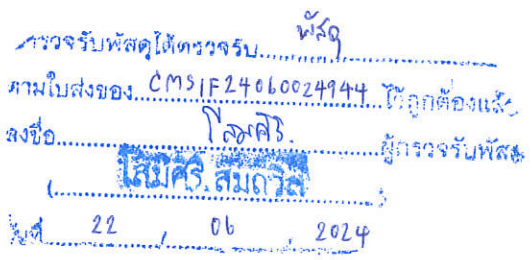 ตรวจรับพัสดุได้ตรวจรับ พัสดุ
ตามใบส่งของ CMSIF24060024944 ไว้ถูกต้องแล้ว
ลงชื่อ โสมศิริ. ผู้ตรวจรับพัสดุ
( โสมศิริ. สมถวิล )
วันที่ 22 / 06 / 2024